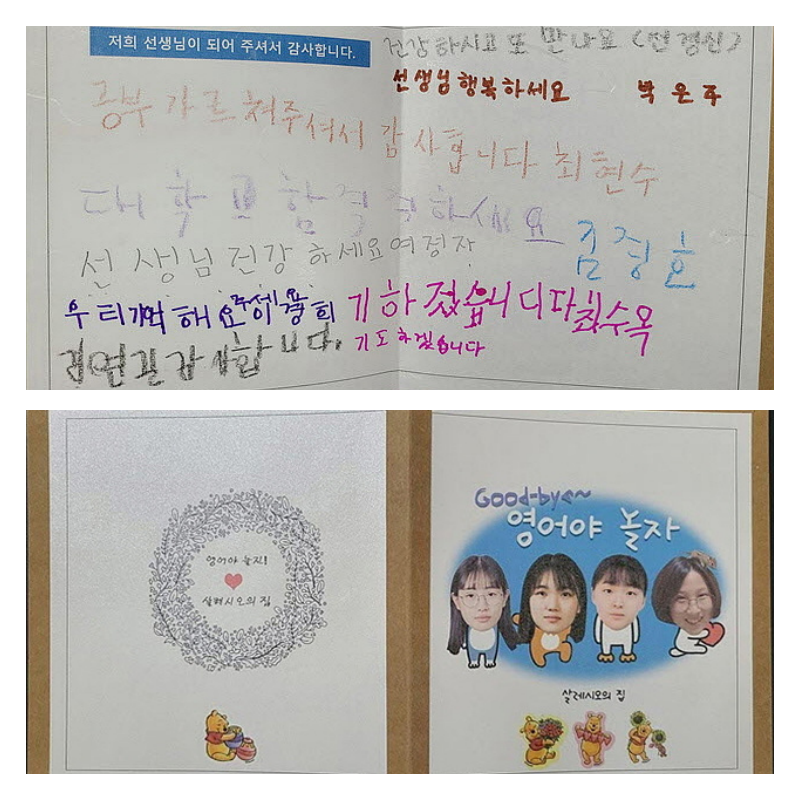 저희 선생님이 되어 주셔서 감사합니다.
건강하시고 또 만나요 (선경신)
선생님행복하세요 박은주
공부 가르쳐주셔서 감사합니다 최현수
대학교합격축하세요
김경호
선생님건강하세요여정자
우리기억해요주세용
이경희
기하겠습니다다최수옥
기도하겠습니다
감사합니다.
Good-bye~
영어야 놀자
영어야 놀자!
살레시오의 집
살레시오의 집